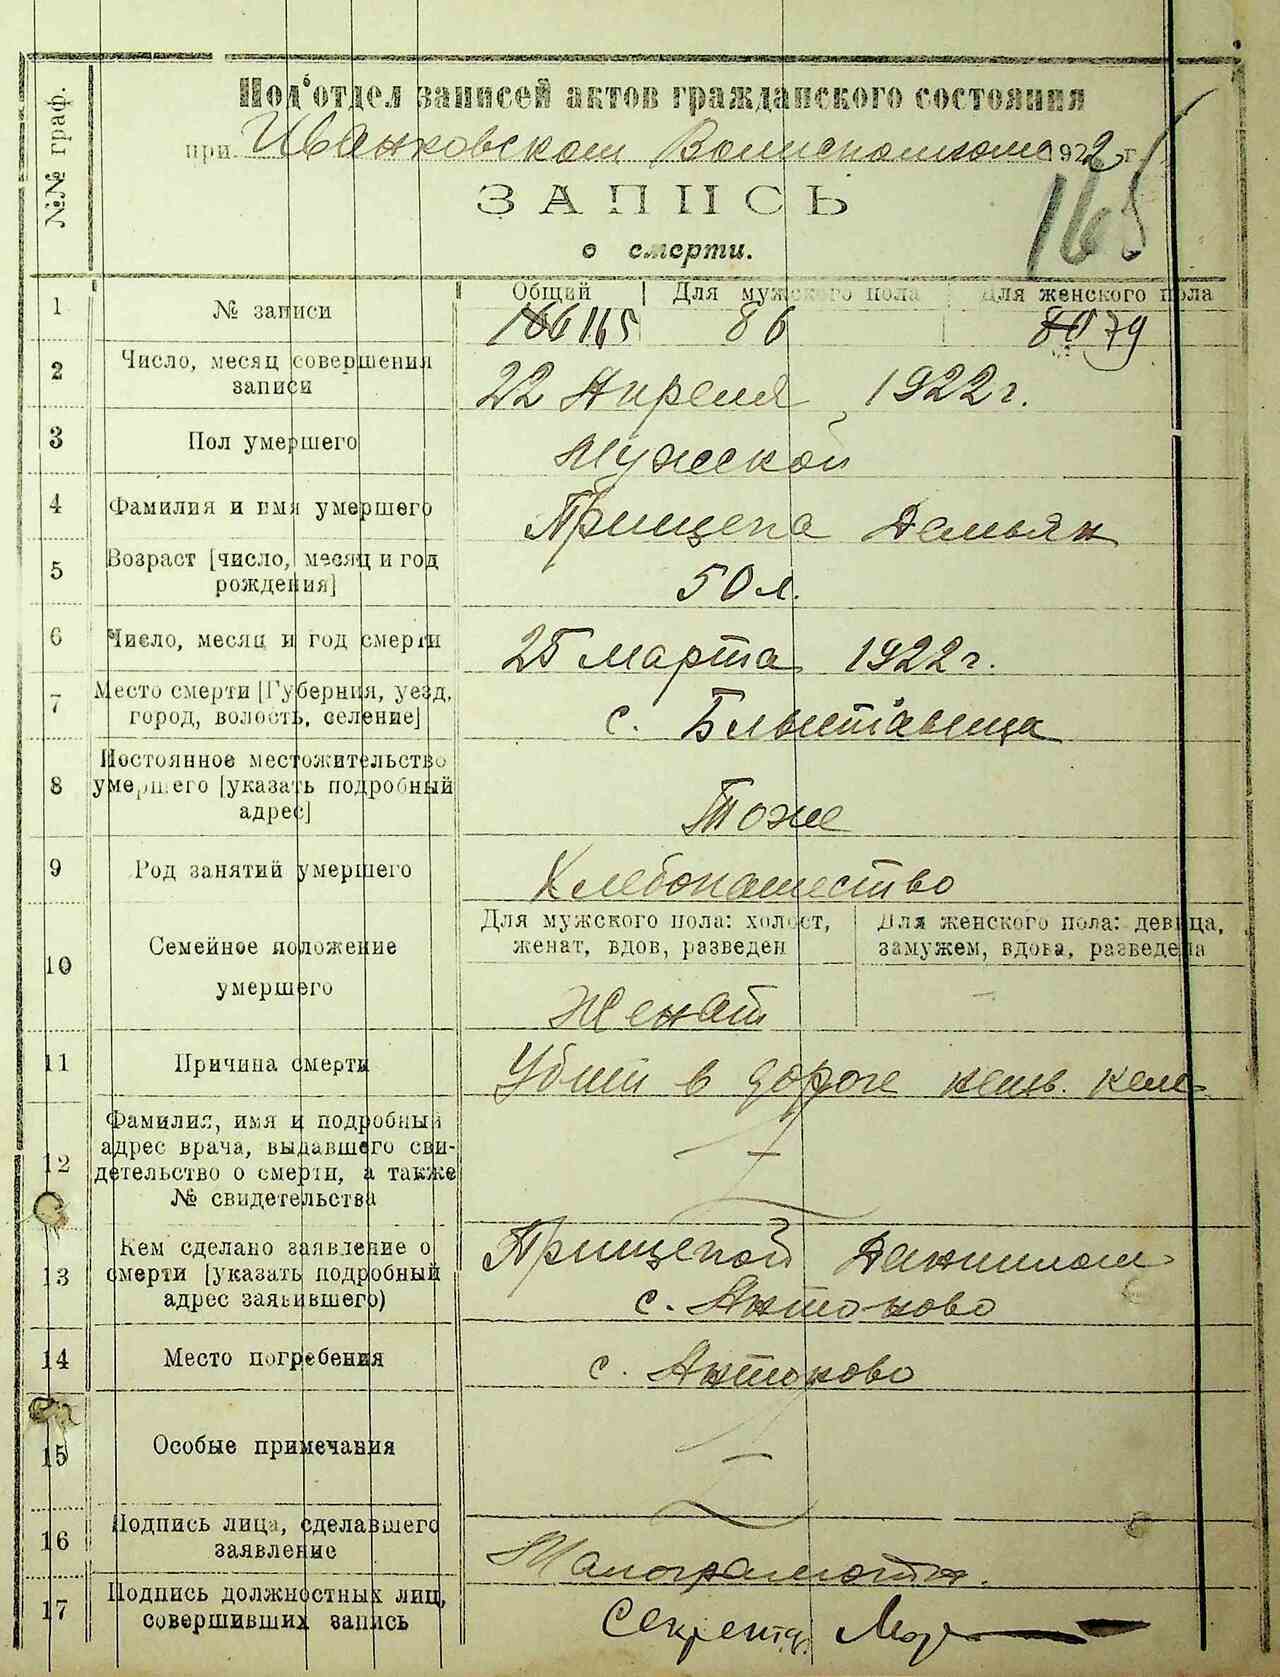 №№ граф.
Под'отдел записей актов гражданского состояния
при Иванковском Волисполкоме 1922 г.
165
ЗАПИСЬ
о смерти.
1 № записи Общий Для мужского пола Для женского пола
166 165 86 80 79
2 Число, месяц совершения записи
22 Апреля 1922 г.
3 Пол умершего Мужской
4 Фамилия и имя умершего Прищепа Демьян
5 Возраст [число, месяц и год рождения]
50 л.
6 Число, месяц и год смерти 25 Марта 1922 г.
7 Место смерти [Губерния, уезд, город, волость, селение]
с. Блыставица
8 Постоянное местожительство умершего [указать подробный адрес]
Тоже
9 Род занятий умершего Хлебопашество
10 Семейное положение умершего
Для мужского пола: холост, женат, вдов, разведен
Для женского пола: девица, замужем, вдова, разведена
Женат —
11 Причина смерти Убит в дороге
12 Фамилия, имя и подробный адрес врача, выдавшего свидетельство о смерти, а также № свидетельства
—
13 Кем сделано заявление о смерти [указать подробный адрес заявившего)
Прищепой Данилом
с. Антоново
14 Место погребения с. Антоново
15 Особые примечания —
16 Подпись лица, сделавшего заявление
Малограмотн.
17 Подпись должностных лиц, совершивших запись
Секретарь